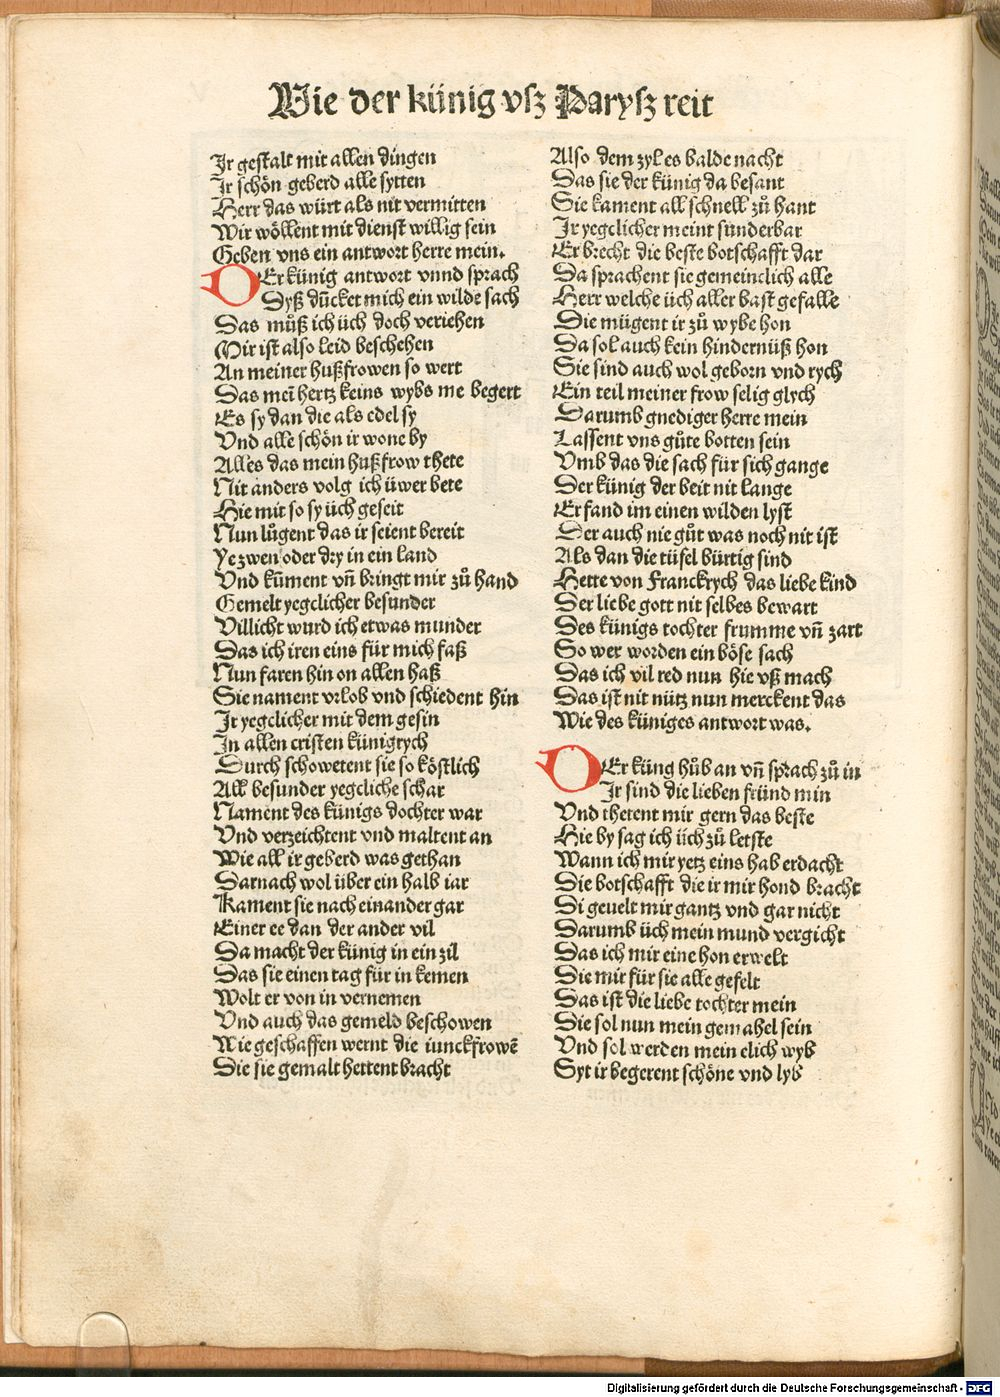 Wie der künig vſz Paryſz reit
Ir geſtalt mit allen dingen
Ir ſchön geberd alle ſytten
Herr das würt als nit vermitten
Wir wöllent mit dienſt willig ſein
Geben vns ein antwort herre mein.
DEr künig antwort vnnd ſprach
Dyß dūcket mich ein wilde ſach
Das mu̇ß ich üch doch veriehen
Mir iſt alſo leid beſchehen
An meiner hußfrowen ſo wert
Das mei hertz keins wybs me begert
Es ſy dan die als edel ſy
Vnd alle ſchön ir wone by
Alles das mein hußfrow thete
Nit anders volg ich üwer bete
Hie mit ſo ſy üch geſeit
Nun lůgent das ir ſeient bereit
Ye zwen oder dry in ein land
Vnd kūment vn̄ bringt mir zů hand
Gemelt yegclicher beſunder
Villicht wurd ich etwas munder
Das ich iren eins für mich faß
Nun faren hin on allen haß
Sie nament vrlob vnd ſchiedent hin
Ir yegclicher mit dem geſin
In allen criſten künigrych
Durch ſchowetent ſie ſo köſtlich
All beſunder yegcliche ſchar
Nament des künigs dochter war
Vnd verzeichtent vnd maltent an
Wie all ir geberd was gethan
Darnach wol über ein halb iar
Kament ſie nach einander gar
Einer ee dan der ander vil
Da macht der künig in ein zil
Das ſie einen tag für in kemen
Wolt er von in vernemen
Vnd auch das gemeld beſchowen
Wie geſchaffen wernt die iunckfrowē
Die ſie gemalt hettent bracht
Alſo dem zyl es balde nacht
Das ſie der künig da beſant
Sie kament all ſchnell zů hant
Ir yegclicher meint ſunderbar
Er brecht die beſte botſchafft dar
Da ſprachent ſie gemeinclich alle
Herr welche üch aller baſt gefalle
Die mügent ir zů wybe hon
Da ſol auch kein hindernüß hon
Sie ſind auch wol geborn vnd rych
Ein teil meiner frow ſelig glych
Darumb gnediger herre mein
Laſſent vns gůte botten ſein
Vmb das die ſach für ſich gange
Der künig der beit nit lange
Er fand im einen wilden lyſt
Der auch nie gůt was noch nit iſt
Als dan die tüfel bürtig ſind
Hette von Franckrych das liebe kind
Der liebe gott nit ſelbes bewart
Des künigs tochter frumme vn̄ zart
So wer worden ein böſe ſach
Das ich vil red nun hie vß mach
Das iſt nit nütz nun merckent das
Wie des küniges antwort was.
DEr küng hůb an vn̄ ſprach zů in
Ir ſind die lieben fründ min
Vnd thetent mir gern das beſte
Hie by ſag ich üch zů letſte
Wann ich mir yetz eins hab erdacht
Die botſchafft die ir mir hond bracht
Di geuelt mir gantz vnd gar nicht
Darumb üch mein mund vergicht
Das ich mir eine hon erwelt
Die mir für ſie alle gefelt
Das iſt die liebe tochter mein
Die ſol nun mein gemahel ſein
Vnd ſol werden mein elich wyb
Syt ir begerent ſchöne vnd lyb
Digitalisierung gefördert durch die Deutsche Forschungsgemeinschaft - DFG